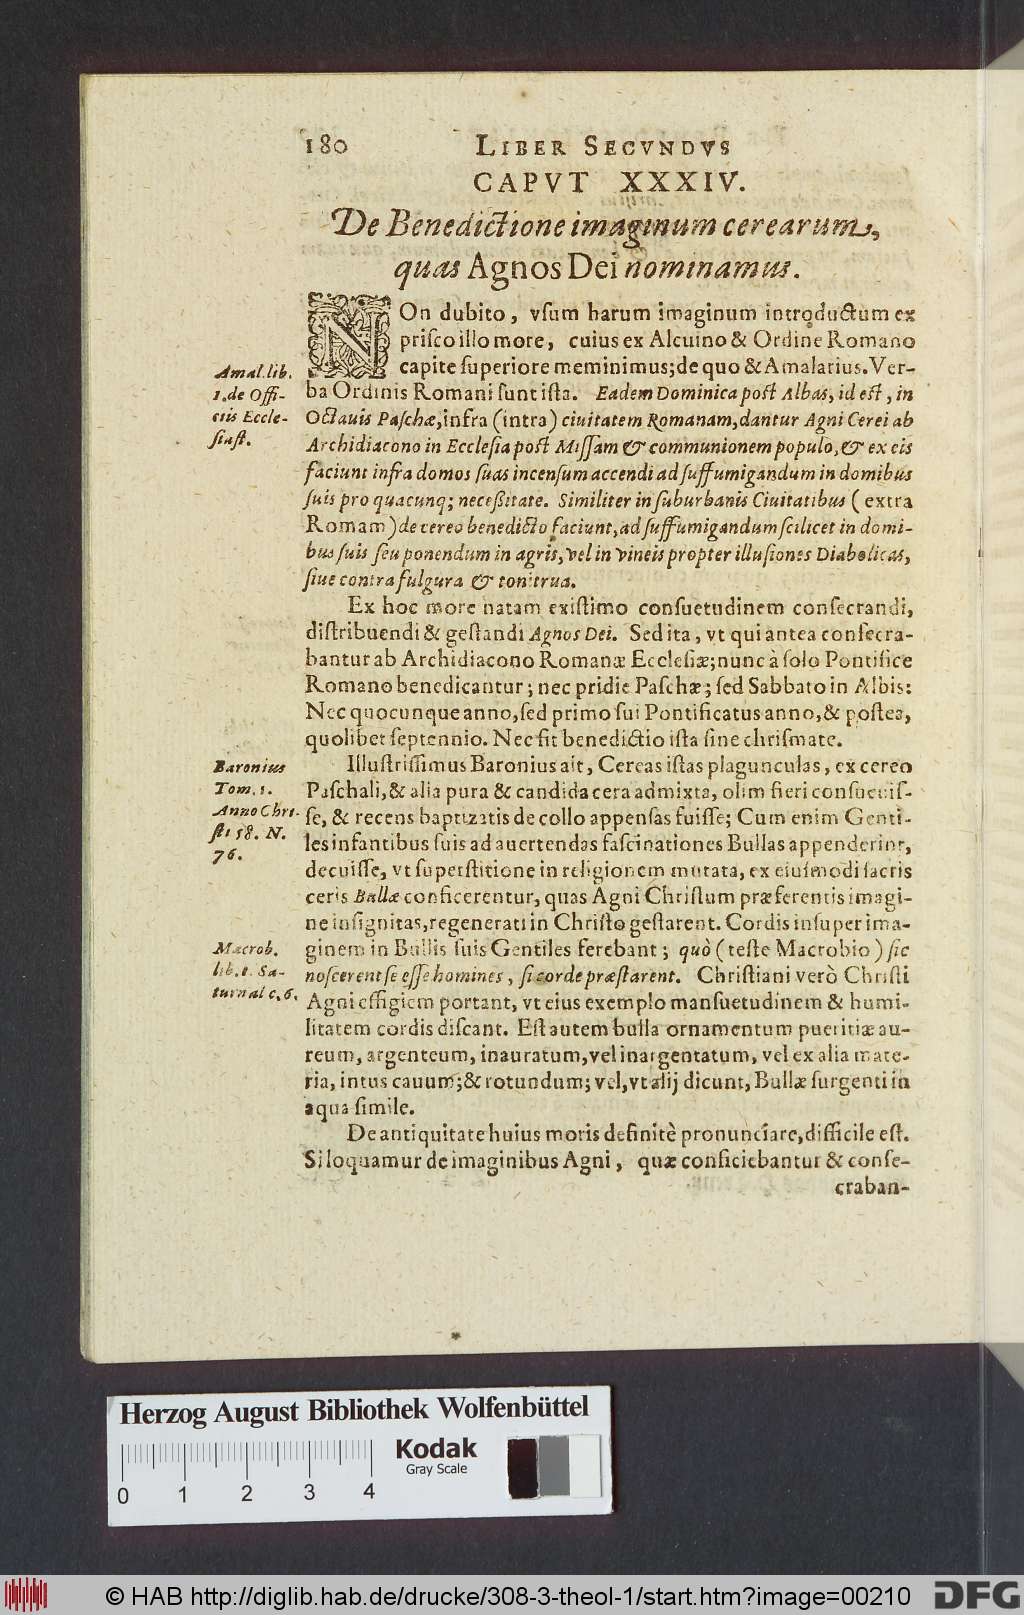 180 LIBER SECVNDVS
CAPVT XXXIV.
De Benedictione imaginum cerearum,
quas Agnos Dei nominamus.
NOn dubito, vſum harum imaginum introductum ex
priſco illo more, cuius ex Alcuino & Ordine Romano
capite ſuperiore meminimus; de quo & Amalarius. Ver-
ba Ordinis Romani ſunt iſta. Eadem Dominica poſt Albas, id eſt, in
Octauis Paſchæ, infra (intra) ciuitatem Romanam, dantur Agni Cerei ab
Archidiacono in Eccleſia poſt Miſſam & communionem populo, & ex eis
faciunt infra domos ſuas incenſum accendi ad ſuffumigandum in domibus
ſuis pro quacunq; neceßitate. Similiter in ſuburbanis Ciuitatibus (extra
Romam) de cereo benedicto faciunt, ad ſuffumigandum ſcilicet in domi-
bus ſuis ſeu ponendum in agris, vel in vineis propter illuſiones Diabolicas,
ſiue contra fulgura & tonitrua.
Amal. lib.
1. de Offi-
ciis Eccle-
ſiaſt.
Ex hoc more natam exiſtimo conſuetudinem conſecrandi,
diſtribuendi & geſtandi Agnos Dei. Sed ita, vt qui antea conſecra-
bantur ab Archidiacono Romanæ Eccleſiæ; nunc à ſolo Pontifice
Romano benedicantur; nec pridie Paſchæ; ſed Sabbato in Albis:
Nec quocunque anno, ſed primo ſui Pontificatus anno, & poſtea,
quolibet ſeptennio. Nec fit benedictio iſta ſine chriſmate.
Illuſtriſſimus Baronius ait, Cereas iſtas plagunculas, ex cereo
Paſchali, & alia pura & candida cera admixta, olim fieri conſueuiſ-
ſe, & recens baptizatis de collo appenſas fuiſſe; Cum enim Genti-
les infantibus ſuis ad auertendas faſcinationes Bullas appenderint,
decuiſſe, vt ſuperſtitione in religionem mutata, ex eiuſmodi ſacris
ceris Bullæ conficerentur, quas Agni Chriſtum præferentis imagi-
ne inſignitas, regenerati in Chriſto geſtarent. Cordis inſuper ima-
ginem in Bullis ſuis Gentiles ferebant; quò (teſte Macrobio) ſic
noſcerent ſe eſſe homines, ſi corde præſtarent. Chriſtiani verò Chriſti
Agni effigiem portant, vt eius exemplo manſuetudinem & humi-
litatem cordis diſcant. Eſt autem bulla ornamentum pueritiæ au-
reum, argenteum, inauratum, vel inargentatum, vel ex alia mate-
ria, intus cauum; & rotundum; vel, vt alij dicunt, Bullæ ſurgenti in
aqua ſimile.
Baronius
Tom. 1.
Anno Chri-
ſti 58. N.
76.
Macrob.
lib. 1. Sa-
turnal c. 6.
De antiquitate huius moris definitè pronunciare, difficile eſt.
Si loquamur de imaginibus Agni, quæ conficiebantur & conſe-
craban-
Herzog August Bibliothek Wolfenbüttel
Kodak
Gray Scale
0 1 2 3 4
© HAB http://diglib.hab.de/drucke/308-3-theol-1/start.htm?image=00210
DFG